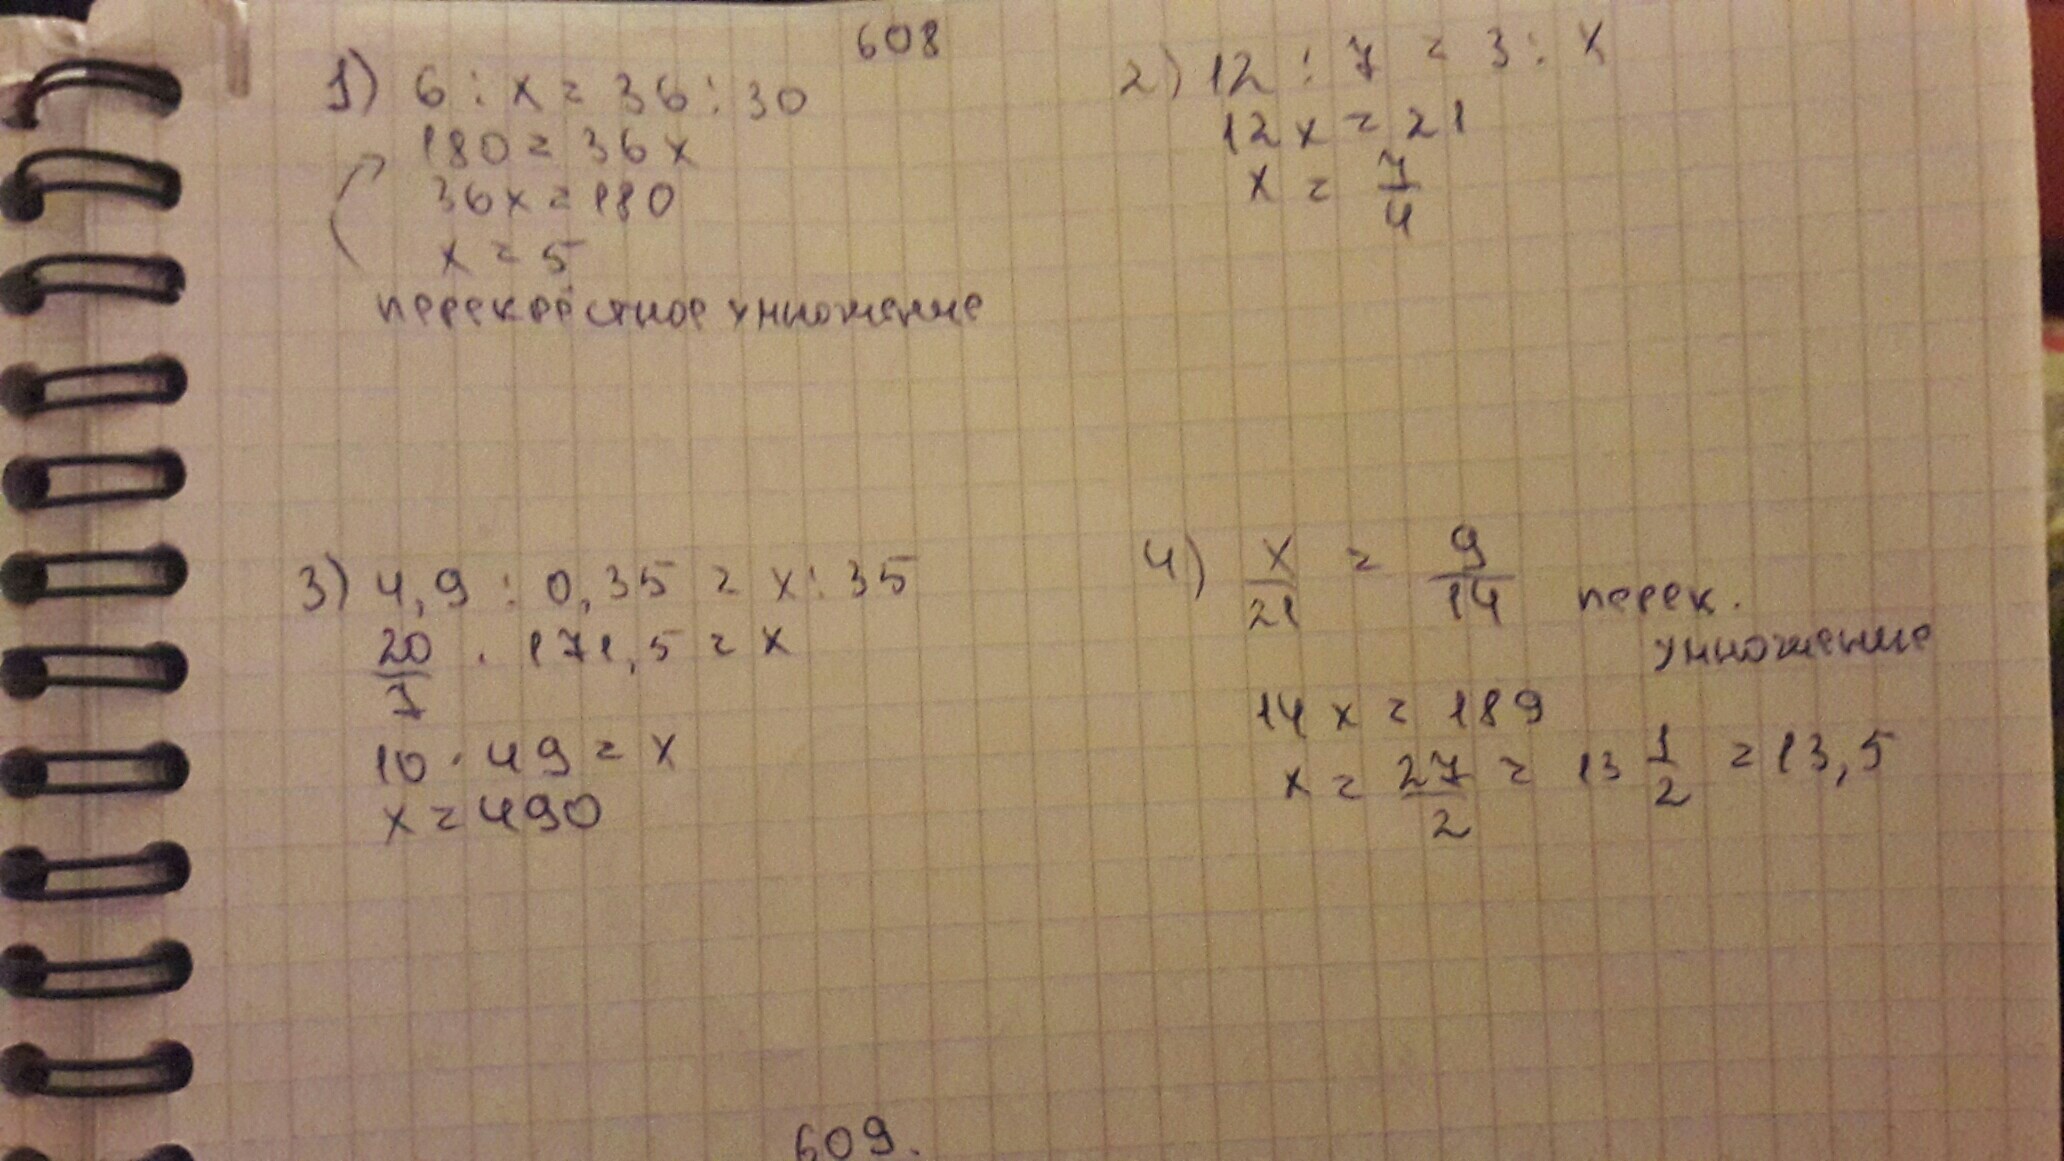 608
1) 6 : x = 36 : 30
180 = 36x
36x = 180
x = 5
перекрёстное умножение
2) 12 : 7 = 3 : x
12x = 21
x = 7/4
3) 4,9 : 0,35 = x : 35
20/7 . 171,5 = x
10 · 49 = x
x = 490
4) x/21 = 9/14 перек.
умножение
14x = 189
x = 27/2 = 13 1/2 = 13,5
609.